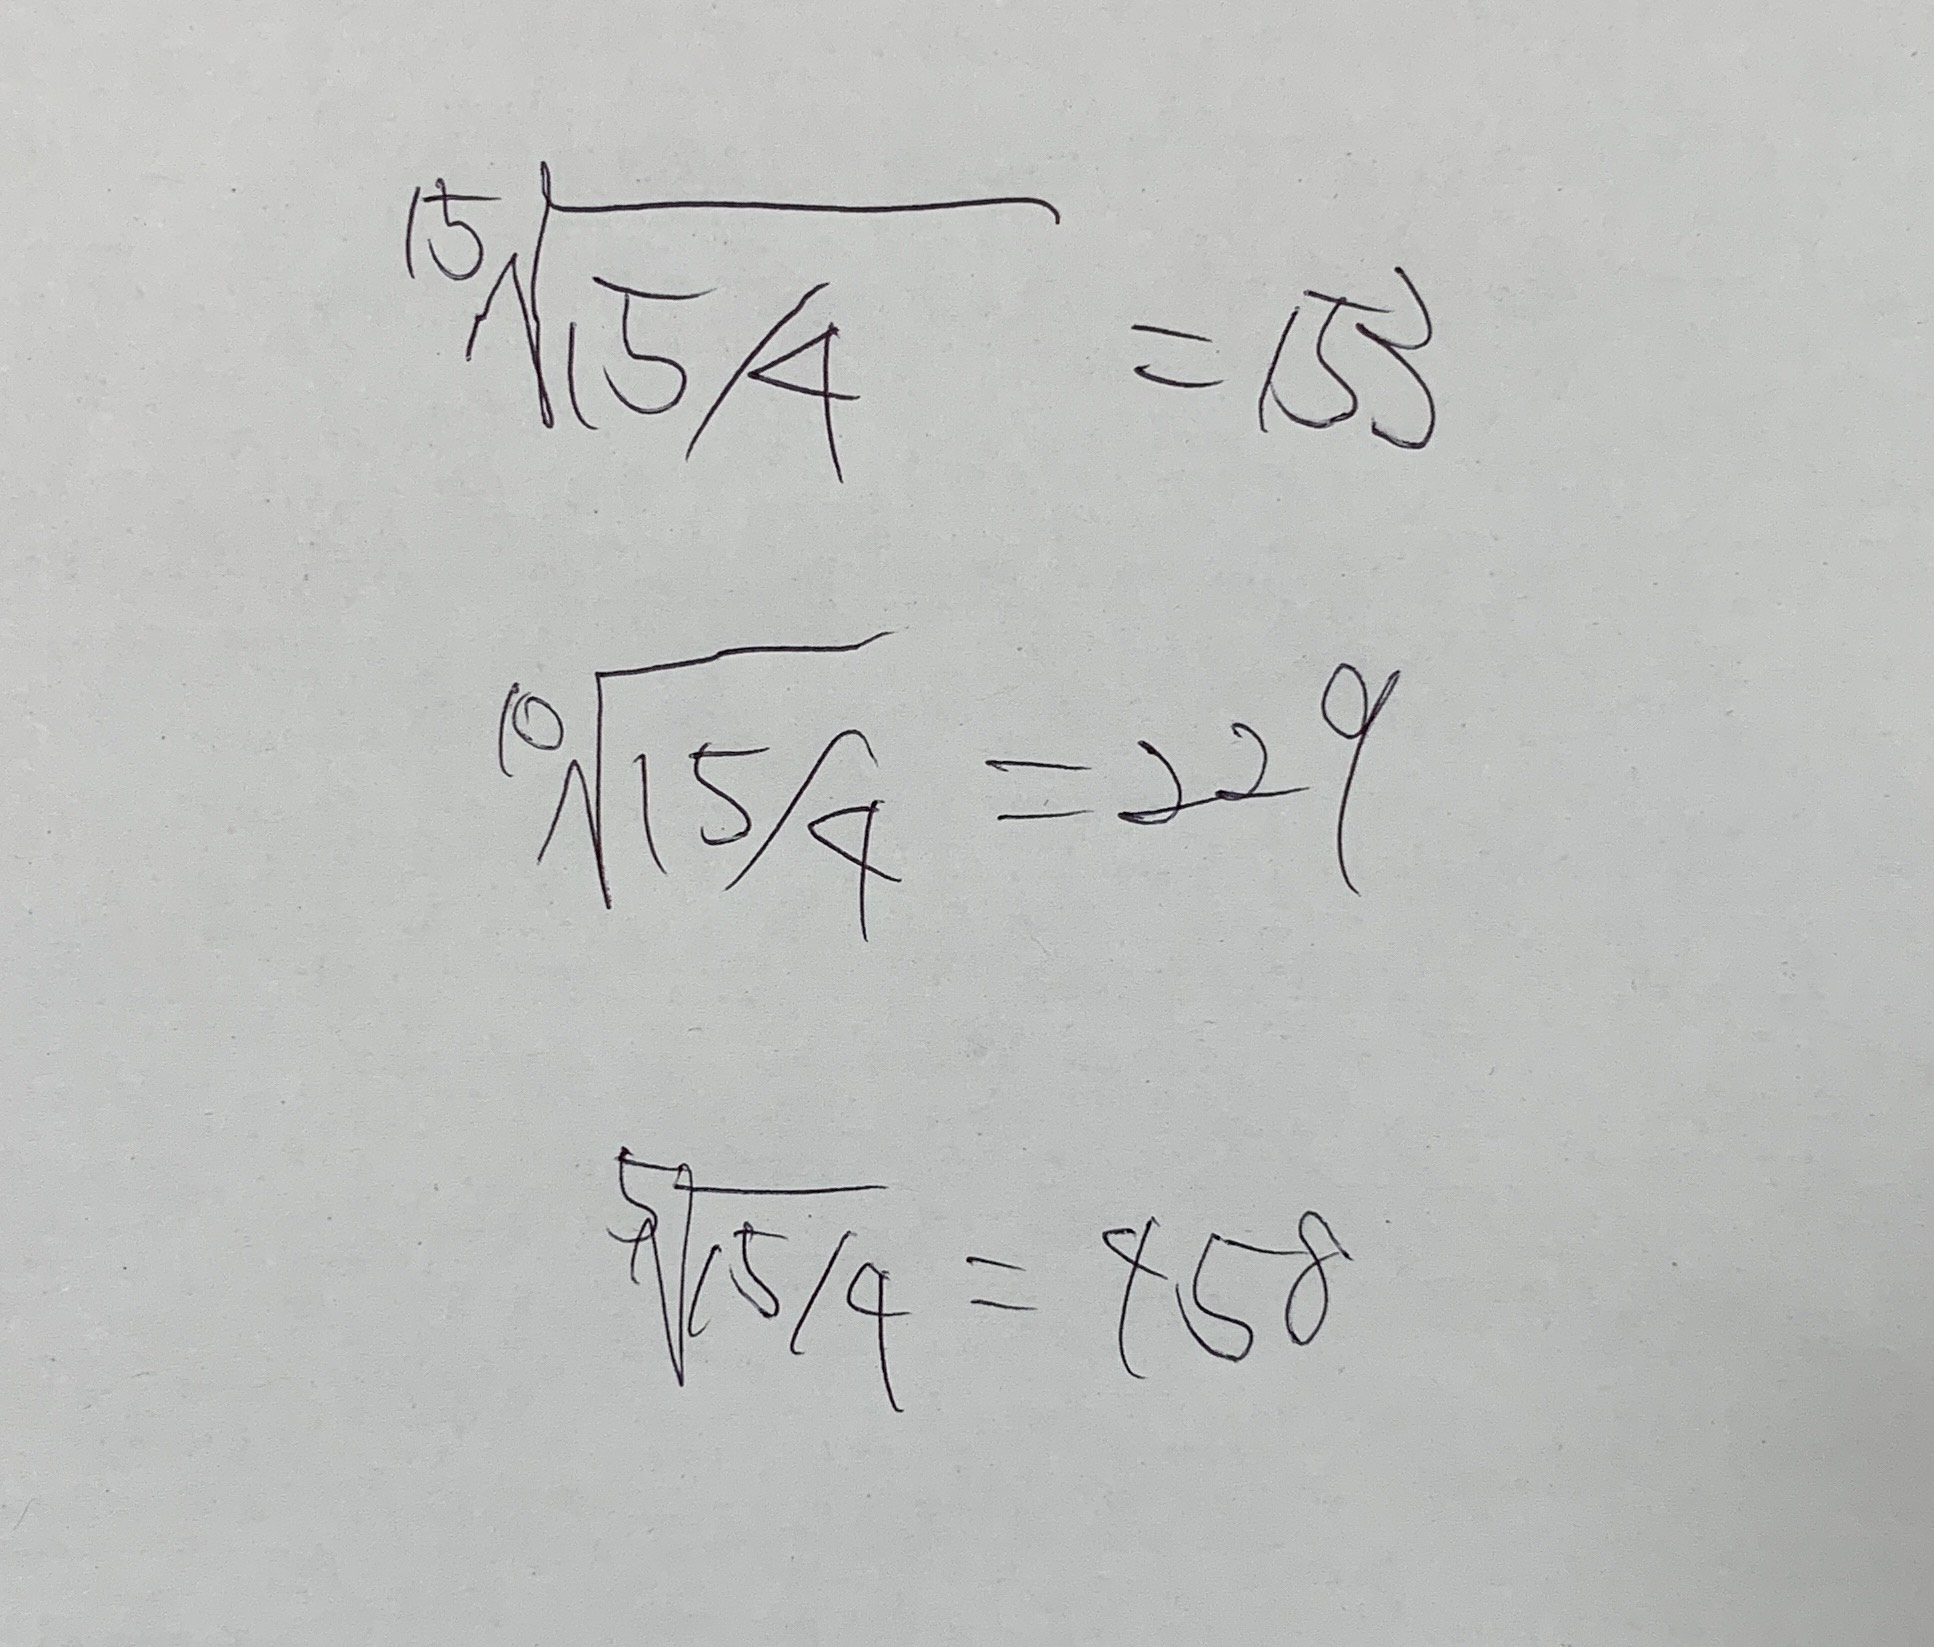 ¹⁵√15/4 = 153
¹⁰√15/4 = 229
⁵√15/4 = 458